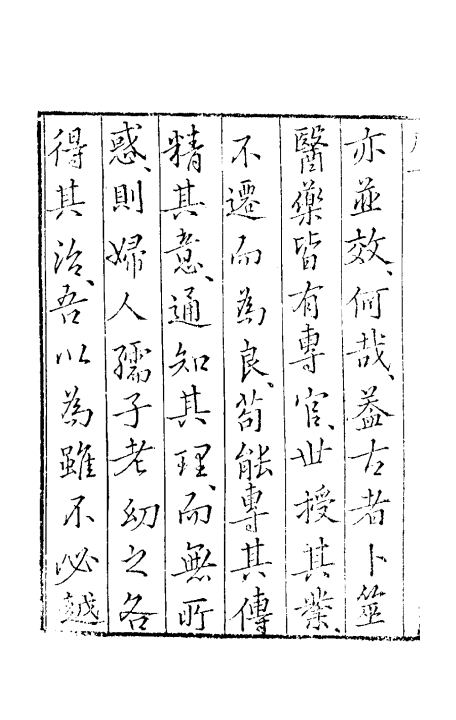 亦並效、何哉、蓋古者卜筮
醫藥皆有專官、世授其業、
不遷而為良、苟能專其傳
精其意、通知其理、而無所
惑、則婦人孺子老幼之各
得其治、吾以為雖不必越